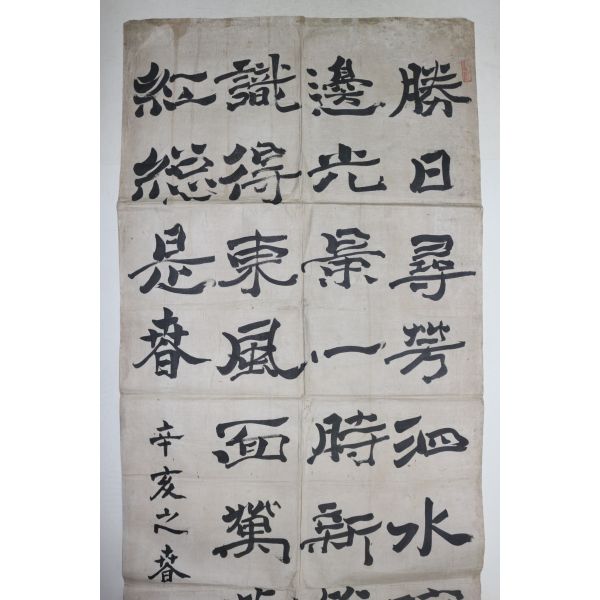 勝日尋芳泗水
邊光景一時新
識得東風面萬
紅総是春
辛亥之春